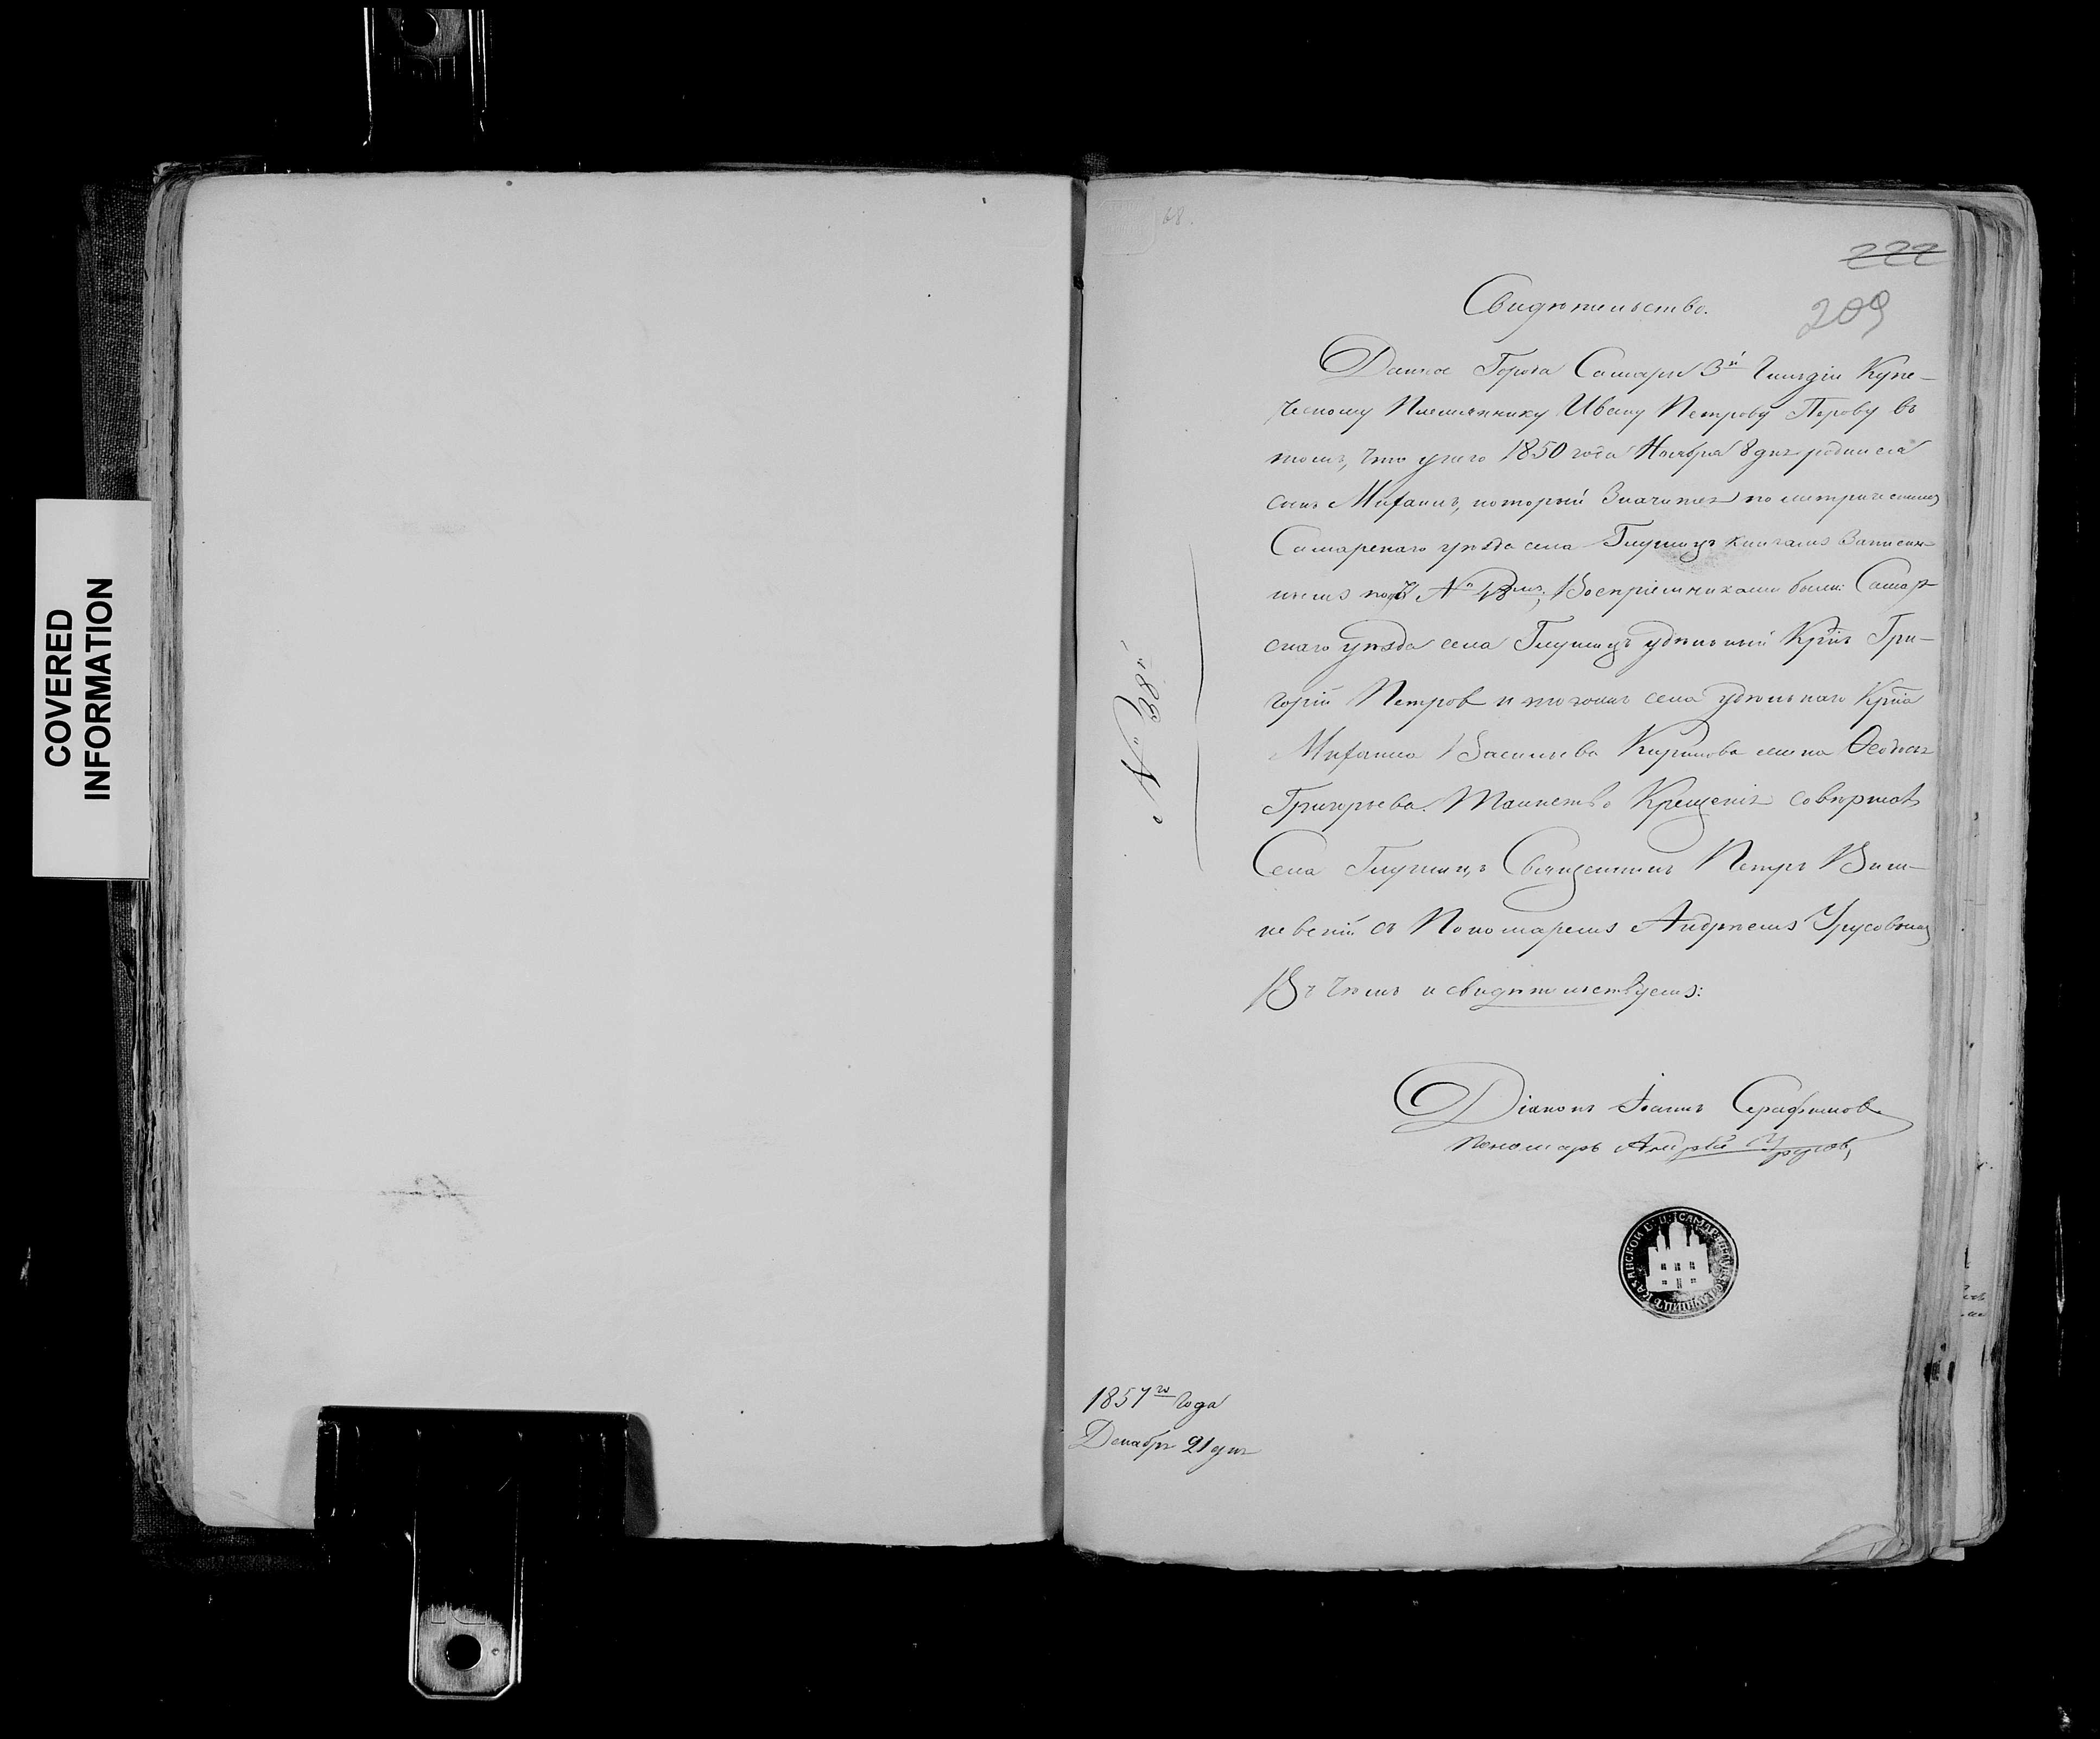 COVERED
INFORMATION
68.
222
209
Свидѣтельство.
Данное Города Самары 3й Гильдіи Купе-
ческому Племяннику Ивану Петрову Перову въ
томъ, что у него 1850 года Ноября 8 дня родился
сынъ Михаилъ, который значится по метрическимъ
Самарскаго уѣзда села Глушицъ книгамъ записан-
нымъ подъ №; Воспріемниками были: Самар-
скаго уѣзда села Глушицъ удѣльный Крнъ Гри-
горій Петров и того же села удѣльнаго Крна
Михаила Васильева жена Ѳеодосья
Григорьева. Таинство Крещенія совершалъ
Села Глушицъ Священникъ Петръ Виш-
невскій съ Пономаремъ Андреемъ Урусовымъ
Въ чемъ и свидѣтельствуемъ:
Діаконъ Іоаннъ Серафимовъ
Пономарь Андрей Урусовъ,
№ 88й
1857го Года
Декабря 21 дня